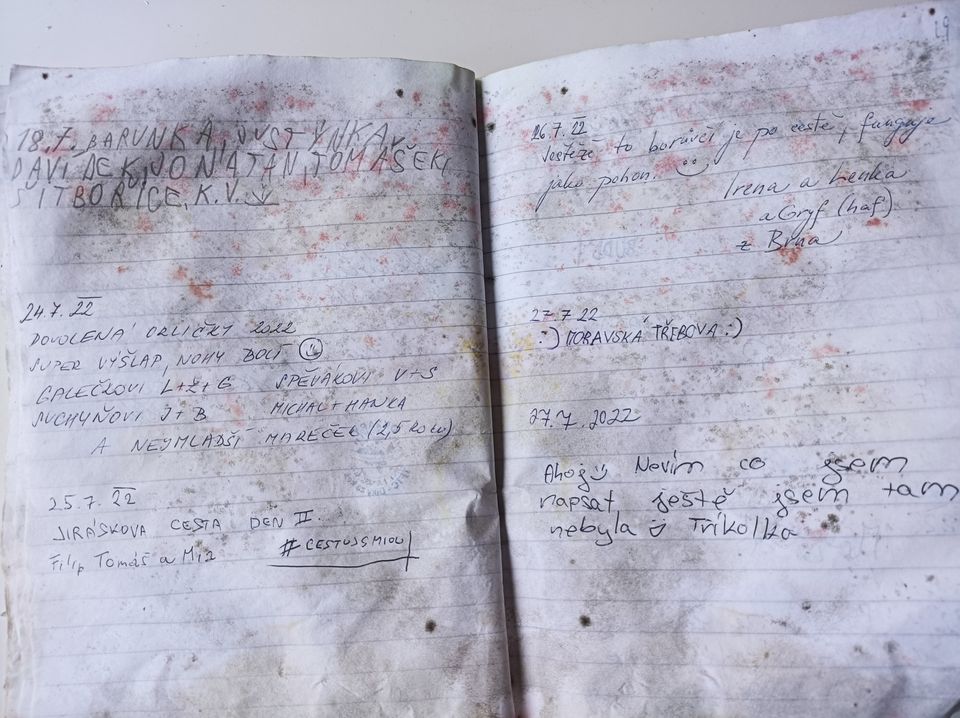 18.7. BARUNKA, JUSTÝNKA,
DAVÍDEK, JONATAN, TOMÁŠEK,
ŠITBOŘICE, K.V.
24.7. 22
DOVOLENÁ ORLIČKY 2022
SUPER VÝŠLAP, NOHY BOLÍ
L+Z+G SPĚVÁKOVI V+S
SUCHYŇOVI J+B MICHAL+HANKA
A NEJMLADŠÍ MAREČEK (2,5 ROKU)
25.7. 22
JIRÁSKOVA CESTA DEN II.
Filip Tomáš a Mia #CESTUJSMIOU
29
26.7. 22
Ještěže to borůvčí je po cestě, funguje
jako pohon. :)
Irena a Lenka
a Gryf (haf)
z Brna
27.7.22
:) MORAVSKÁ TŘEBOVÁ :)
27.7.2022
Ahoj :) Nevím co jsem
napsat ještě jsem tam
nebyla :) Tříkolka